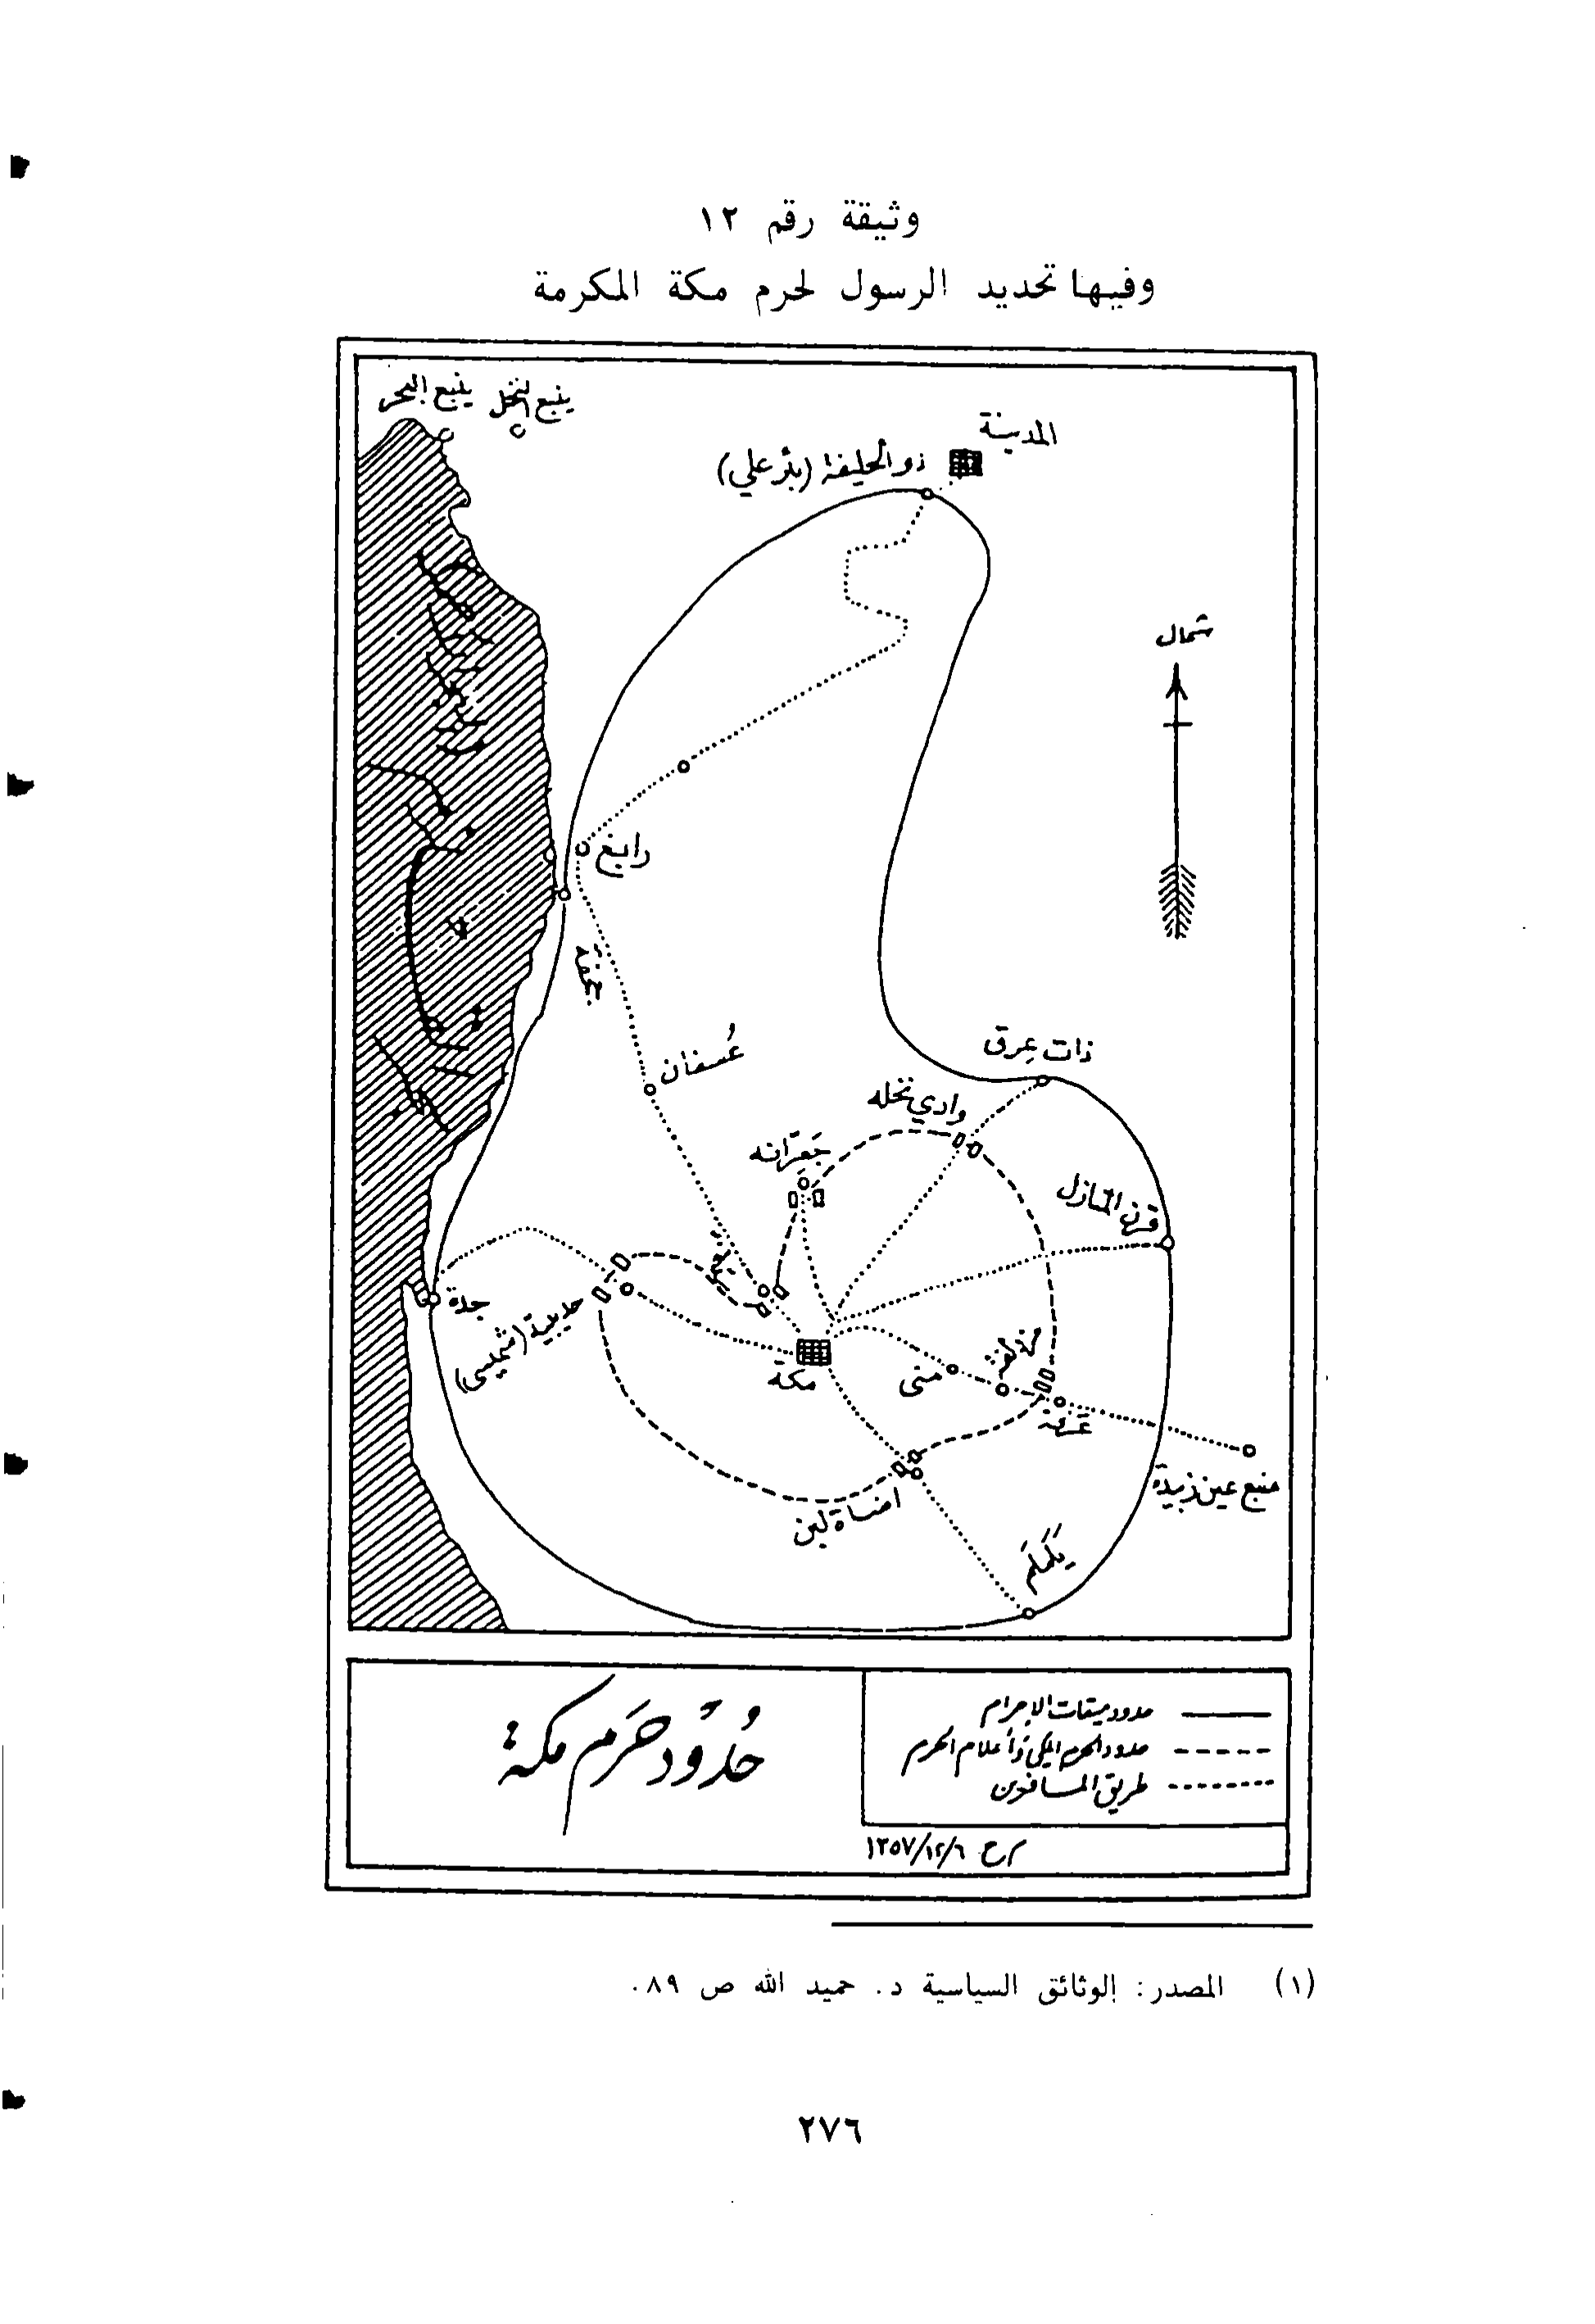 وثيقة رقم ١٢
وفيها تحديد الرسول لحرم مكة المكرمة
ينبع البحر
ينبع النخل
المدينة
ذو الحليفة (بئر علي)
شمال
رابغ
جحفة
عُسفان
ذات عِرق
وادي نخله
جَعرّانه
قرن المنازل
جدة
حديبية (شميسي)
مكة
منى
مزدلفة
عرفة
منبع عين زبيدة
اضاة لبن
يَلَملَم
حدود ميقات الإحرام
حدود الحرم المكي وأعلام الحرم
طريق المسافرين
حُدُود حَرَم مكة
١٣٥٧/١٢/٦
(١) المصدر: الوثائق السياسية د. حميد الله ص ٨٩.
٢٧٦